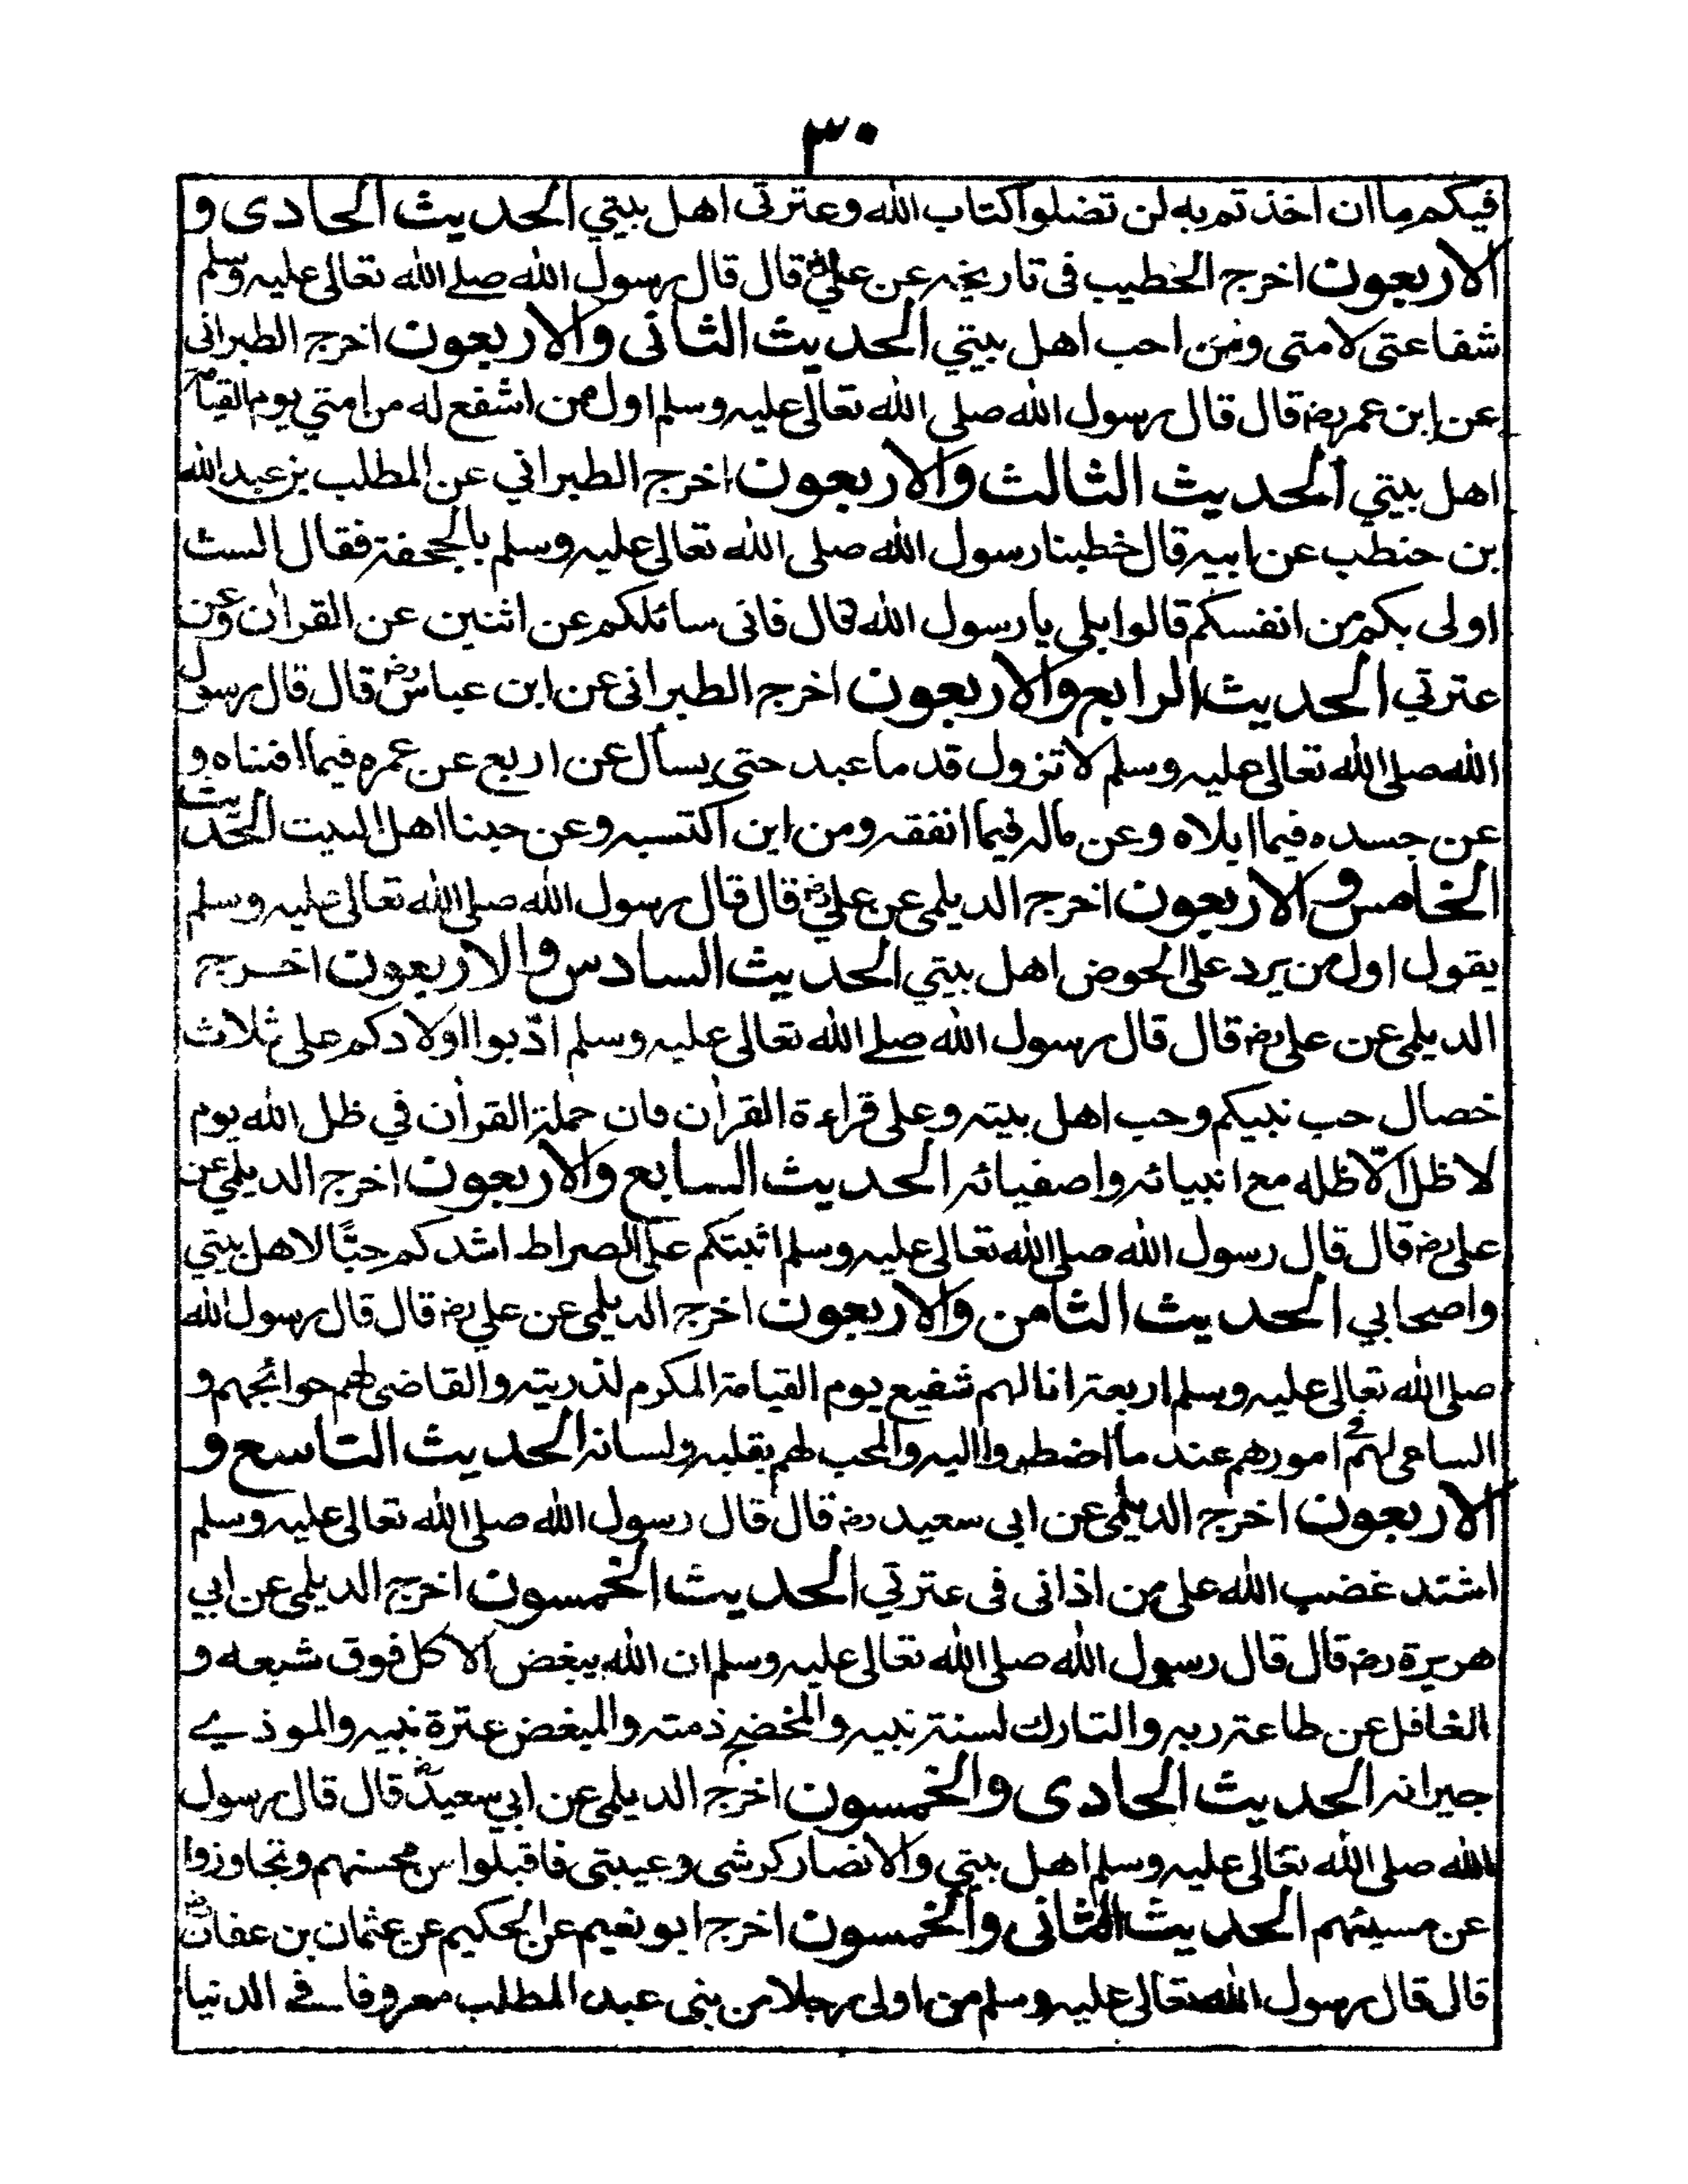 ٣٠
فيكم ما ان اخذتم به لن تضلوا كتاب الله وعترتى اهل بيتي الحديث الحادى و
الاربعون اخرج الخطيب فى تاريخه عن علي رض قال قال رسول الله صلے الله تعالى عليه وسلم
شفاعتى لامتى ومن احب اهل بيتي الحديث الثانى والاربعون اخرج الطبرانى
عن ابن عمر رض قال قال رسول الله صلى الله تعالى عليه وسلم اول من اشفع له من امتي يوم القيامة
اهل بيتي الحديث الثالث والاربعون اخرج الطبراني عن المطلب بن عبد الله
بن حنطب عن ابيه قال خطبنا رسول الله صلى الله تعالى عليه وسلم بالجحفة فقال الست
اولى بكم من انفسكم قالوا بلى يا رسول الله قال فانى سائلكم عن اثنين عن القراٰن وعن
عترتي الحديث الرابع والاربعون اخرج الطبرانى عن ابن عباس رض قال قال رسول
الله صلى الله تعالى عليه وسلم لا تزول قدما عبد حتى يسأل عن اربع عن عمره فيما افناه و
عن جسده فيما ابلاه وعن ماله فيما انفقه ومن اين اكتسبه وعن حبنا اهل البيت الحديث
الخامس والاربعون اخرج الديلمى عن علي رض قال قال رسول الله صلى الله تعالى عليه وسلم
يقول اول من يرد على الحوض اهل بيتي الحديث السادس والاربعون اخرج
الديلمى عن على رض قال قال رسول الله صلے الله تعالى عليه وسلم ادّبوا اولادكم على ثلاث
خصال حب نبيكم وحب اهل بيته وعلى قراءة القراٰن فان حملة القراٰن في ظل الله يوم
لا ظل الّا ظله مع انبيائه واصفيائه الحديث السابع والاربعون اخرج الديلمي عن
على رض قال قال رسول الله صلى الله تعالى عليه وسلم اثبتكم على الصراط اشدكم حبًّا لاهل بيتي
واصحابي الحديث الثامن والاربعون اخرج الديلمى عن علي رض قال قال رسول الله
صلى الله تعالى عليه وسلم اربعة انا لهم شفيع يوم القيامة المكرم لذريته والقاضى لهم حوائجهم و
الساعى لهم فى امورهم عند ما اضطروا اليه والمحب لهم بقلبه ولسانه الحديث التاسع و
الاربعون اخرج الديلمى عن ابى سعيد رض قال قال رسول الله صلى الله تعالى عليه وسلم
اشتد غضب الله على من اذانى فى عترتي الحديث الخمسون اخرج الديلمى عن ابي
هريرة رض قال قال رسول الله صلى الله تعالى عليه وسلم ان الله يبغض الاكل فوق شبعه و
الغافل عن طاعة ربه والتارك لسنة نبيه والمخضج ذمته والمبغض عترة نبيه والموذے
جيرانه الحديث الحادى والخمسون اخرج الديلمى عن ابي سعيد رض قال قال رسول
الله صلى الله تعالى عليه وسلم اهل بيتي والانصار كرشى وعيبتى فاقبلوا من محسنهم وتجاوزوا
عن مسيئهم الحديث الثانى والخمسون اخرج ابو نعيم عن الحكيم عن عثمان بن عفان رض
قال قال رسول الله تعالى عليه وسلم من اولى رجلا من بنى عبد المطلب معروفا فے الدنيا